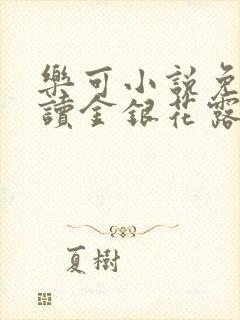 樂可小說免
讀金銀花露
夏樹